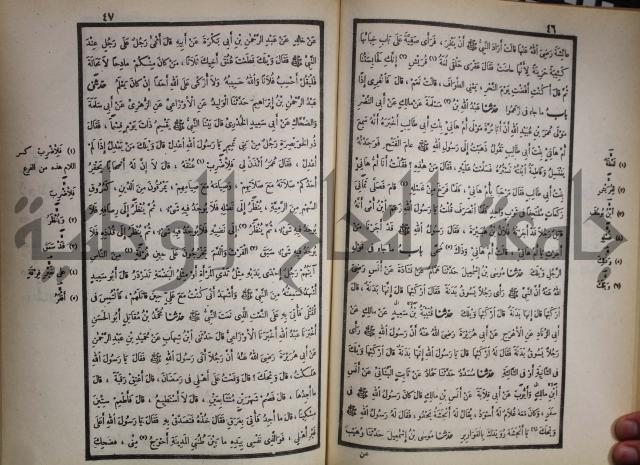 ٤٦
عائشة رضى الله عنها قالت أراد النبي ﷺ أن ينفر فرأى صفية على باب خبائها
كئيبة حزينة لأنها حاضت فقال عقرى حلقى لغة قريش إنك لحابستنا
ثم قال أكنت أفضت يوم النحر يعنى الطواف قالت نعم قال فانفرى إذا
باب ما جاء فى زعموا حدثنا عبد الله بن مسلمة عن مالك عن أبى النضر
مولى عمر بن عبيد الله أن أبا مرة مولى أم هانئ بنت أبى طالب أخبره أنه سمع
أم هانئ بنت أبى طالب تقول ذهبت إلى رسول الله ﷺ عام الفتح فوجدته
يغتسل وفاطمة ابنته تستره فسلمت عليه فقال من هذه فقلت أنا أم هانئ
بنت أبى طالب فقال مرحبا بأم هانئ فلما فرغ من غسله قام فصلى ثمانى
ركعات ملتحفا فى ثوب واحد فلما انصرف قلت يا رسول الله زعم ابن أمى أنه
قاتل رجلا قد أجرته فلان بن هبيرة فقال رسول الله ﷺ قد أجرنا من
أجرت يا أم هانئ قالت أم هانئ وذاك ضحى باب ما جاء فى قول
الرجل ويلك حدثنا موسى بن إسمعيل حدثنا همام عن قتادة عن أنس رضى
الله عنه أن النبي ﷺ رأى رجلا يسوق بدنة فقال اركبها قال إنها بدنة قال
اركبها قال إنها بدنة قال اركبها ويلك حدثنا قتيبة بن سعيد عن مالك عن
أبى الزناد عن الأعرج عن أبى هريرة رضى الله عنه أن رسول الله ﷺ رأى
رجلا يسوق بدنة فقال له اركبها قال يا رسول الله إنها بدنة قال اركبها ويلك
فى الثانية أو فى الثالثة حدثنا مسدد حدثنا حماد عن ثابت البنانى عن أنس
ابن مالك وأيوب عن أبى قلابة عن أنس بن مالك قال كان رسول الله ﷺ فى
سفر وكان معه غلام له أسود يقال له أنجشة يحدو فقال له رسول الله ﷺ
ويحك يا أنجشة رويدك بالقوارير حدثنا موسى بن إسمعيل حدثنا وهيب
عن
٤٧
عن خالد عن عبد الرحمن بن أبى بكرة عن أبيه قال أثنى رجل على رجل عند
النبي ﷺ فقال ويلك قطعت عنق أخيك ثلاثا من كان منكم مادحا لا محالة
فليقل أحسب فلانا والله حسيبه ولا أزكى على الله أحدا إن كان يعلم حدثنى
عبد الرحمن بن إبراهيم حدثنا الوليد عن الأوزاعى عن الزهرى عن أبى سلمة
والضحاك عن أبى سعيد الخدرى قال بينا النبي ﷺ يقسم ذات يوم قسما فقال
ذو الخويصرة رجل من بنى تميم يا رسول الله اعدل قال ويلك من يعدل إذا لم
أعدل فقال عمر ائذن لى فلأضرب عنقه قال لا إن له أصحابا يحقر
أحدكم صلاته مع صلاتهم وصيامه مع صيامهم يمرقون من الدين كمروق
السهم من الرمية ينظر إلى نصله فلا يوجد فيه شىء ثم ينظر إلى رصافه فلا
يوجد فيه شىء ثم ينظر إلى نضيه فلا يوجد فيه شىء ثم ينظر إلى قذذه فلا
يوجد فيه شىء سبق الفرث والدم يخرجون على حين فرقة من الناس
آيتهم رجل إحدى يديه مثل ثدى المرأة أو مثل البضعة تدردر قال أبو سعيد
أشهد لسمعته من النبي ﷺ وأشهد أنى كنت مع على حين قاتلهم فالتمس فى
القتلى فأتى به على النعت الذى نعت النبي ﷺ حدثنا محمد بن مقاتل أبو الحسن
أخبرنا عبد الله أخبرنا الأوزاعى قال حدثنى ابن شهاب عن حميد بن عبد الرحمن
عن أبى هريرة رضى الله عنه أن رجلا أتى رسول الله ﷺ فقال يا رسول الله
هلكت قال ويحك قال وقعت على أهلى فى رمضان قال أعتق رقبة قال
ما أجدها قال فصم شهرين متتابعين قال لا أستطيع قال فأطعم ستين
مسكينا قال ما أجد فأتى بعرق فقال خذه فتصدق به فقال يا رسول الله أعلى
غير أهلى فوالذى نفسى بيده ما بين طنبى المدينة أحوج منى فضحك
(١) فلأضرب كسر
اللام هذه من الفرع
فلأضرب
(٢) وينظر
(٣) قد سبق
(٤) على خير فرقة
(٥) أفقر
جامعة النجاح الوطنية